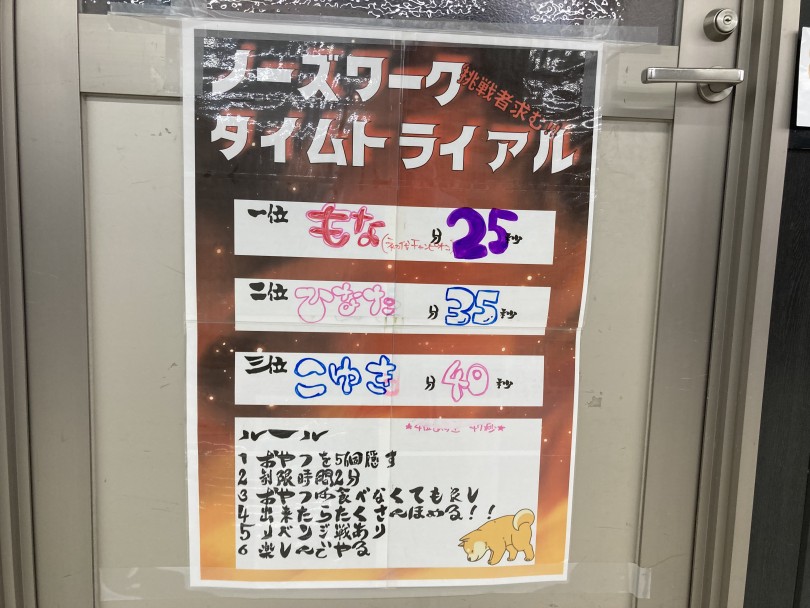 ノーズワーク
挑戦者求む!!!
タイムトライアル
一位 もな (初代チャンピオン) 分 25 秒
二位 ひなた 分 35 秒
三位 こゆき 分 40 秒
ルール
1 おやつを5個隠す
2 制限時間2分
3 おやつは食べなくても良し
4 出来たらたくさんほめる!!
5 リベンジ戦あり
6 楽しんでやる